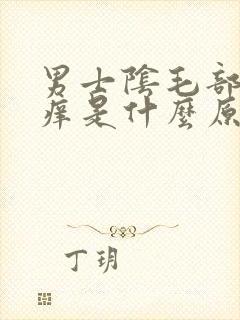 男士陰毛部
痒是什麼原
丁玥